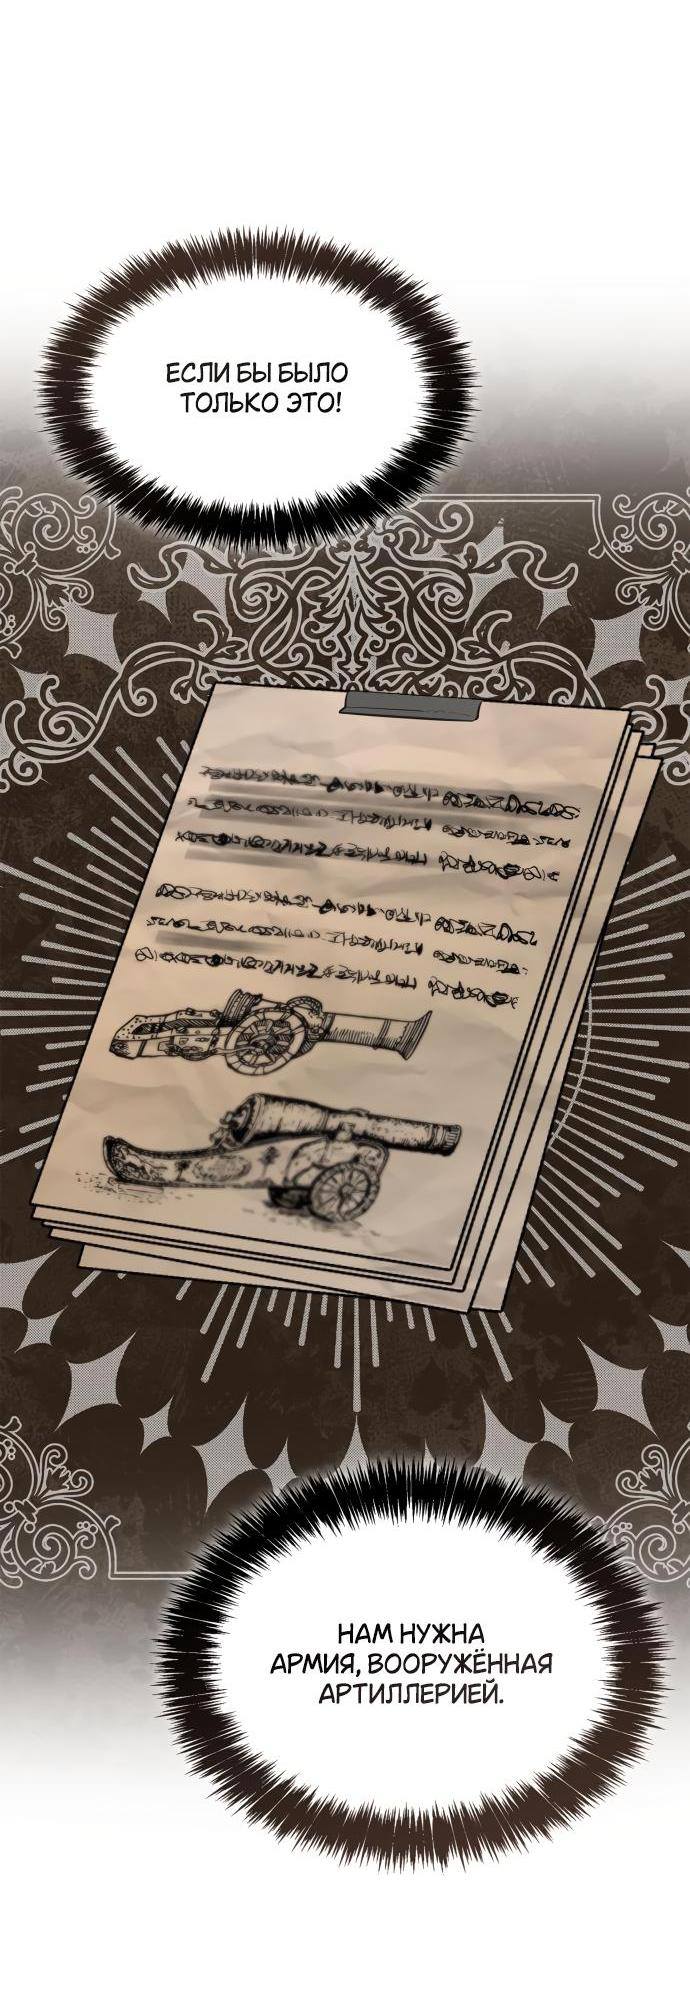 ЕСЛИ БЫ БЫЛО
ТОЛЬКО ЭТО!
НАМ НУЖНА
АРМИЯ, ВООРУЖЁННАЯ
АРТИЛЛЕРИЕЙ.